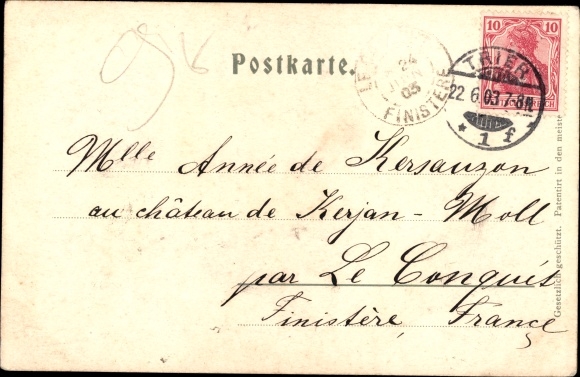 Postkarte.
10 10
TRIER
22 6.03.7-8N.
* 1 f *
24
03
FINISTERE
Mlle Année de Kersauzon
au château de Kerjan - Moll
par Le Conquêt
Finistère, France
Gesetzlich geschützt. Patentirt in den meiste